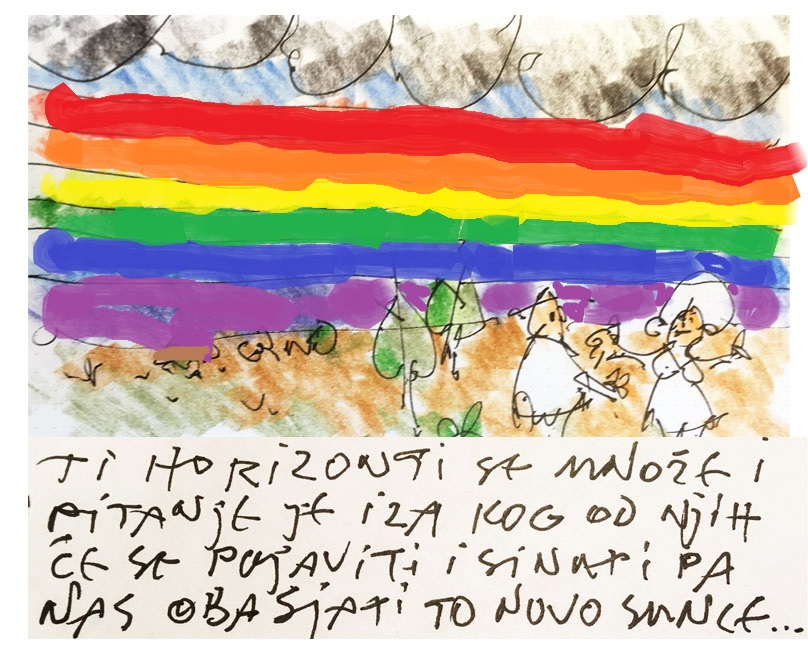 TI HORIZONTI SE MNOŽE I
PITANJE JE IZA KOG OD NJIH
ĆE SE POJAVITI I SINUTI PA
NAS OBASJATI TO NOVO SUNCE...